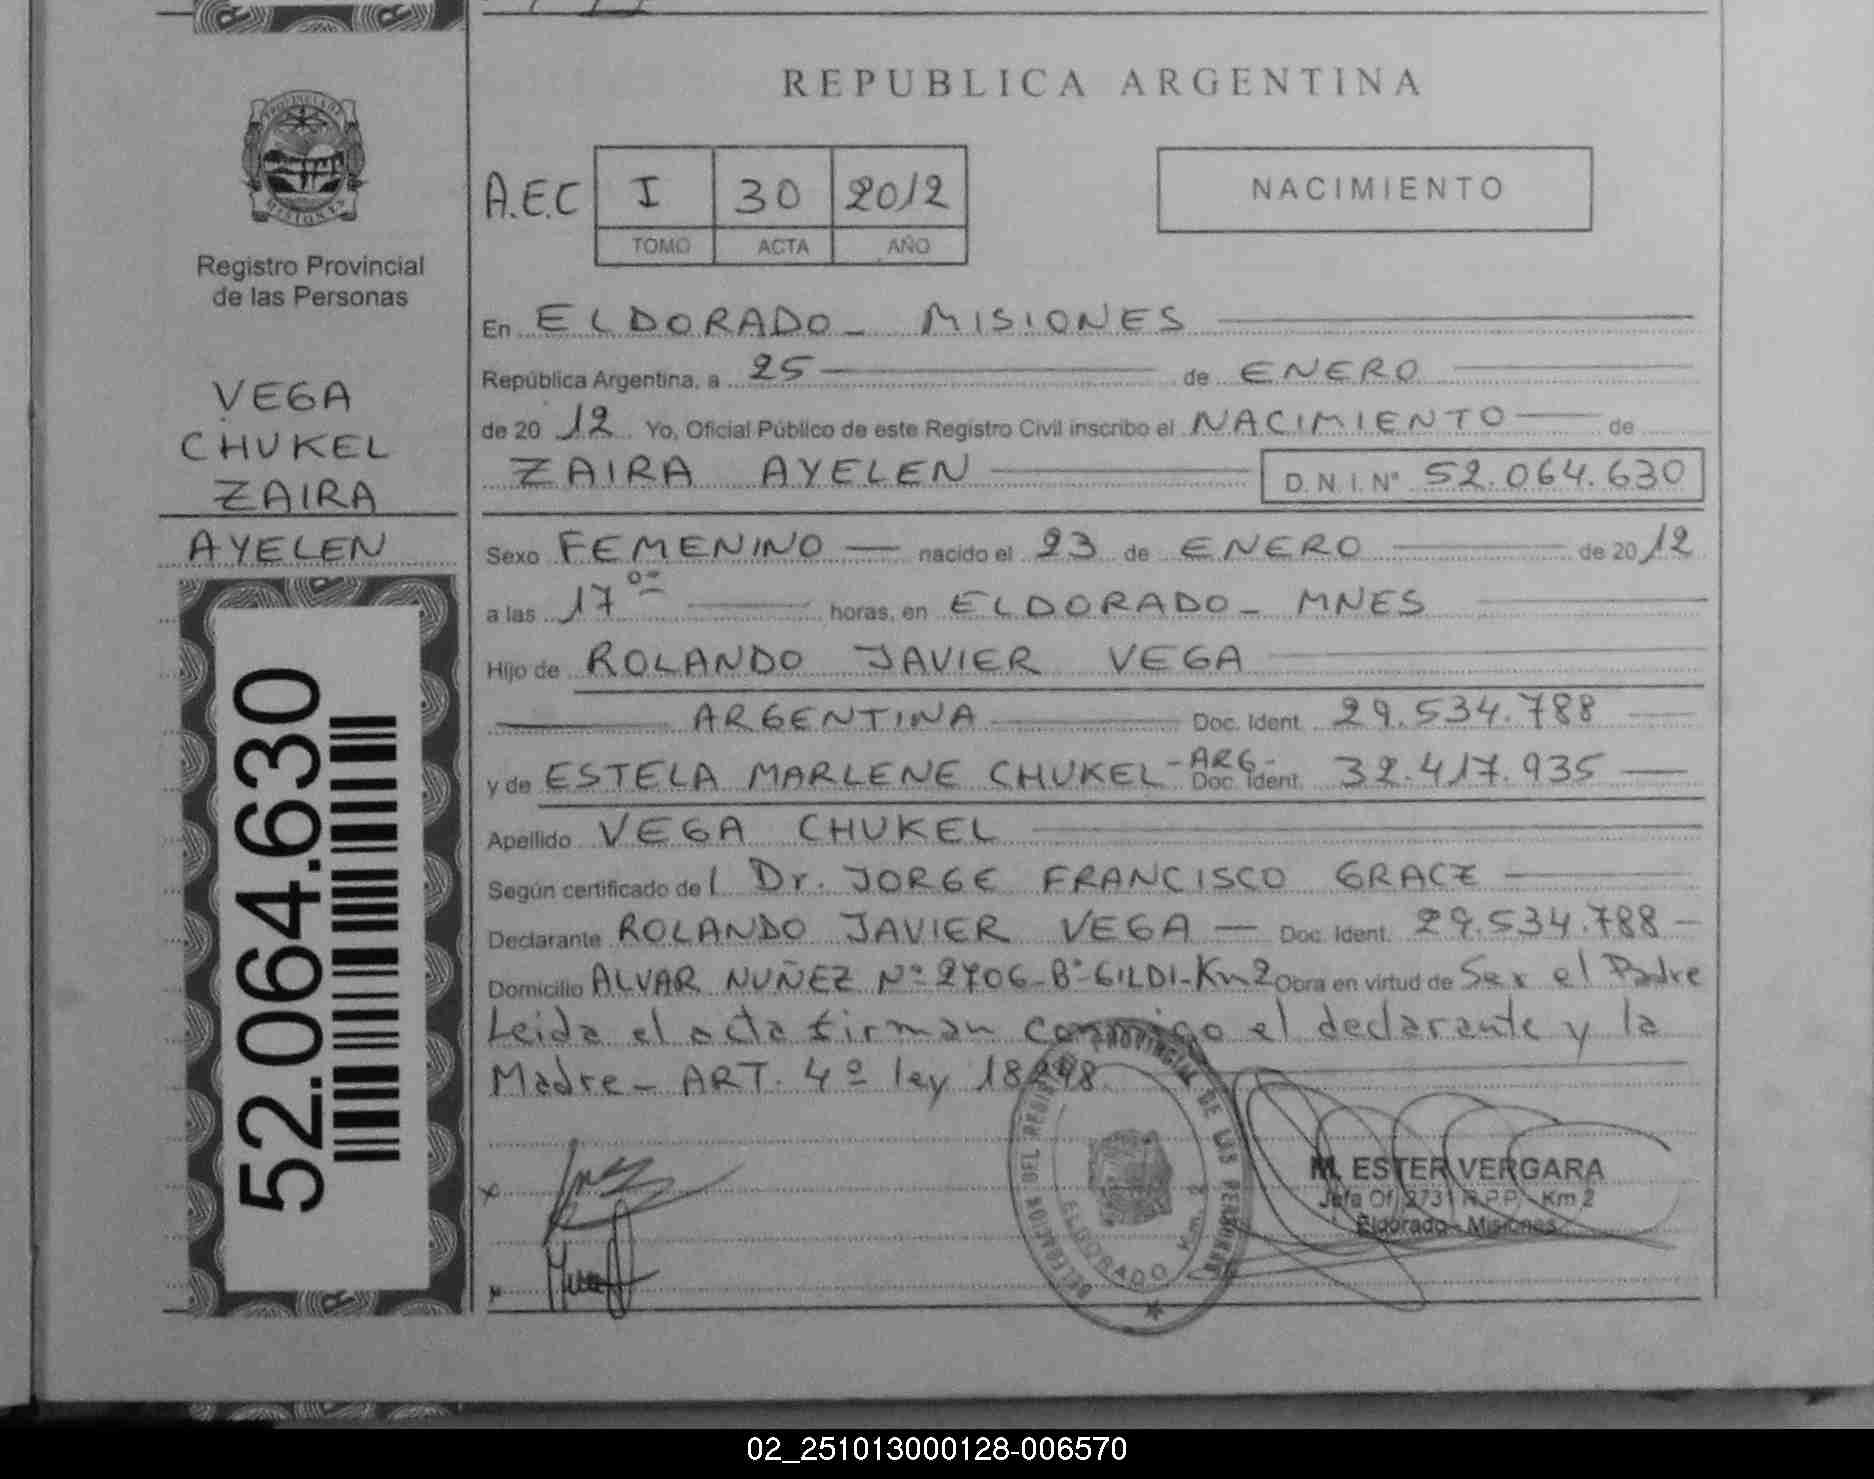 REPUBLICA ARGENTINA
PROVINCIA DE
MISIONES
Registro Provincial
de las Personas
VEGA
CHUKEL
ZAIRA
AYELEN
52.064.630
A.E.C I 30 2012
TOMO ACTA AÑO
NACIMIENTO
En ELDORADO - MISIONES
República Argentina, a 25 de ENERO
de 20 12 Yo, Oficial Público de este Registro Civil inscribo el NACIMIENTO de
ZAIRA AYELEN D. N. I. Nº 52.064.630
Sexo FEMENINO — nacido el 23 de ENERO de 20 12
a las 17 oo horas, en ELDORADO - MNES
Hijo de ROLANDO JAVIER VEGA
ARGENTINA Doc. Ident. 29.534.788
y de ESTELA MARLENE CHUKEL - ARG - Doc. Ident. 32.417.935
Apellido VEGA CHUKEL
Según certificado de l Dr. JORGE FRANCISCO GRACZ
Declarante ROLANDO JAVIER VEGA — Doc. Ident. 29.534.788 -
Domicilio ALVAR NUÑEZ Nº 2706 - Bº GILDI - Km 2 Obra en virtud de Ser el Padre
Leida el acta firman conmigo el declarante y la
Madre - ART. 4º ley 18248
DELEGACION DEL REGISTRO PROVINCIAL DE LAS PERSONAS
ELDORADO Km. 2
M. ESTER VERGARA
Jefa Of. 2731 R.P.P. - Km 2
Eldorado - Misiones
02_251013000128-006570